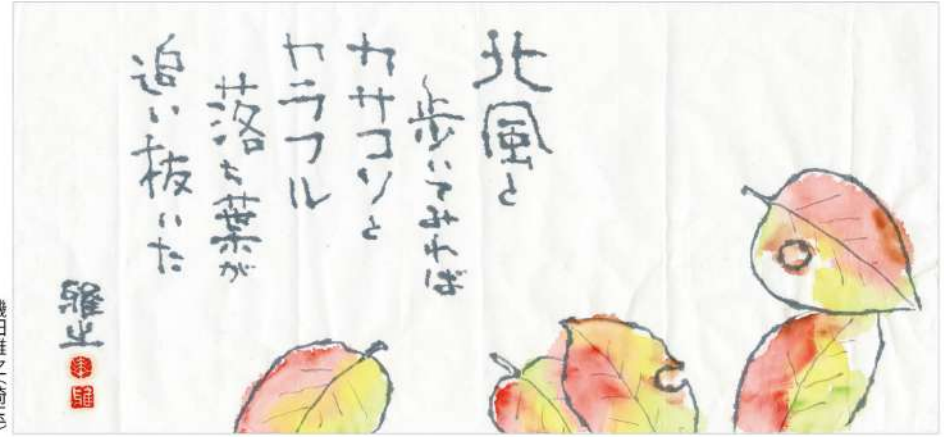 北風と
歩いてみれば
カサコソと
カラフル
落ち葉が
追い抜いた
雅之